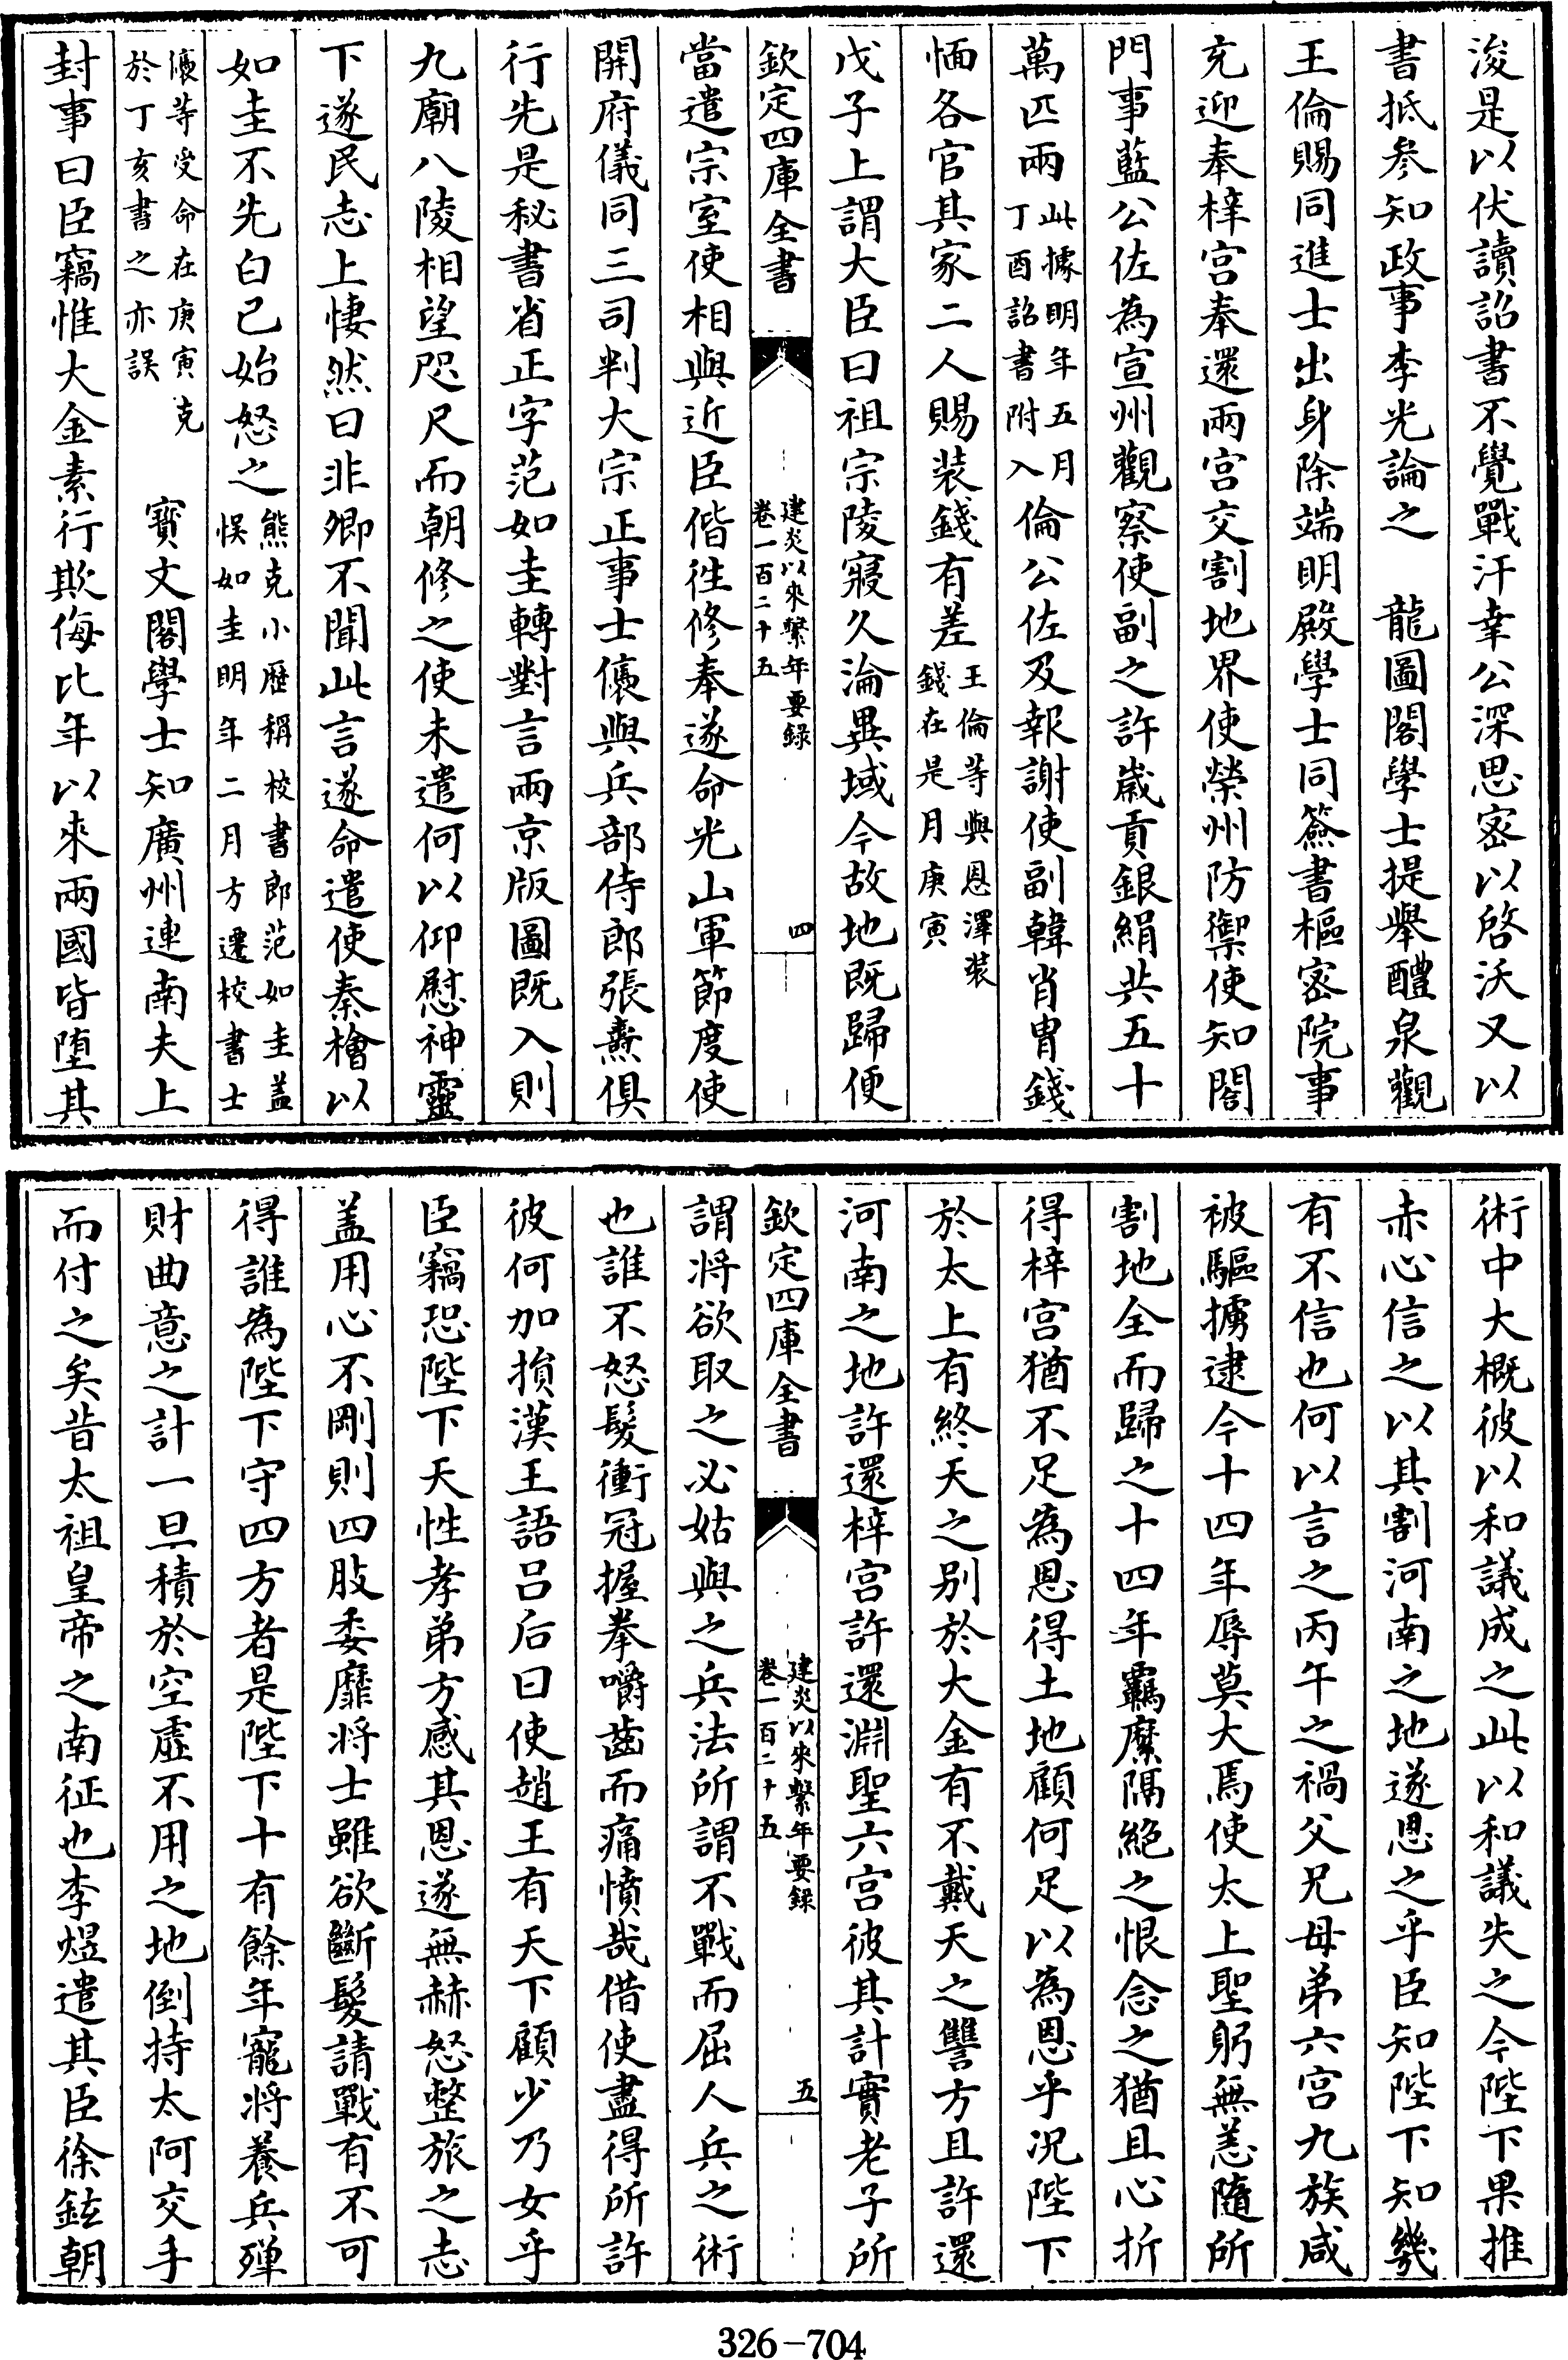 浚是以伏讀詔書不覺戰汗幸公深思密以啓沃又以
書抵参知政事李光論之　龍圖閣學士提舉醴泉觀
王倫賜同進士出身除端明殿學士同簽書樞密院事
充迎奉梓宫奉還兩宫交割地界使榮州防禦使知閤
門事藍公佐為宣州觀察使副之許歳貢銀絹共五十
萬匹兩此據明年五月丁酉詔書附入倫公佐及報謝使副韓肖胄錢
愐各官其家二人賜装錢有差王倫等與恩澤装錢在是月庚寅
戊子上謂大臣曰祖宗陵寢久淪異域今故地既歸便
欽定四庫全書
建炎以來繫年要録
卷一百二十五
四
當遣宗室使相與近臣偕徃修奉遂命光山軍節度使
開府儀同三司判大宗正事士㒟與兵部侍郎張燾俱
行先是秘書省正字范如圭轉對言兩京版圖既入則
九廟八陵相望咫尺而朝修之使未遣何以仰慰神靈
下遂民志上悽然曰非卿不聞此言遂命遣使秦檜以
如圭不先白已始怒之熊克小歷稱校書郎范如圭盖悮如圭明年二月方遷校書士
㒟等受命在庚寅克於丁亥書之亦誤　寳文閣學士知廣州連南夫上
封事曰臣竊惟大金素行欺侮比年以來兩國皆墮其
術中大概彼以和議成之此以和議失之今陛下果推
赤心信之以其割河南之地遂恩之乎臣知陛下知幾
有不信也何以言之丙午之禍父兄母弟六宫九族咸
被驅擄逮今十四年辱莫大焉使太上聖躬無恙隨所
割地全而歸之十四年羈縻隔絶之恨念之猶且心折
得梓宫猶不足為恩得土地顧何足以為恩乎况陛下
於太上有終天之别於大金有不戴天之讐方且許還
河南之地許還梓宫許還淵聖六宫彼其計實老子所
欽定四庫全書
建炎以來繫年要録
卷一百二十五
五
謂將欲取之必姑與之兵法所謂不戰而屈人兵之術
也誰不怒髮衝冠握拳嚼齒而痛憤哉借使盡得所許
彼何加損漢王語吕后曰使趙王有天下顧少乃女乎
臣竊恐陛下天性孝弟方感其恩遂無赫怒整旅之志
盖用心不剛則四肢委靡將士雖欲斷髮請戰有不可
得誰為陛下守四方者是陛下十有餘年寵將養兵殫
財曲意之計一旦積於空虛不用之地倒持太阿交手
而付之矣昔太祖皇帝之南征也李煜遣其臣徐鉉朝
326-704